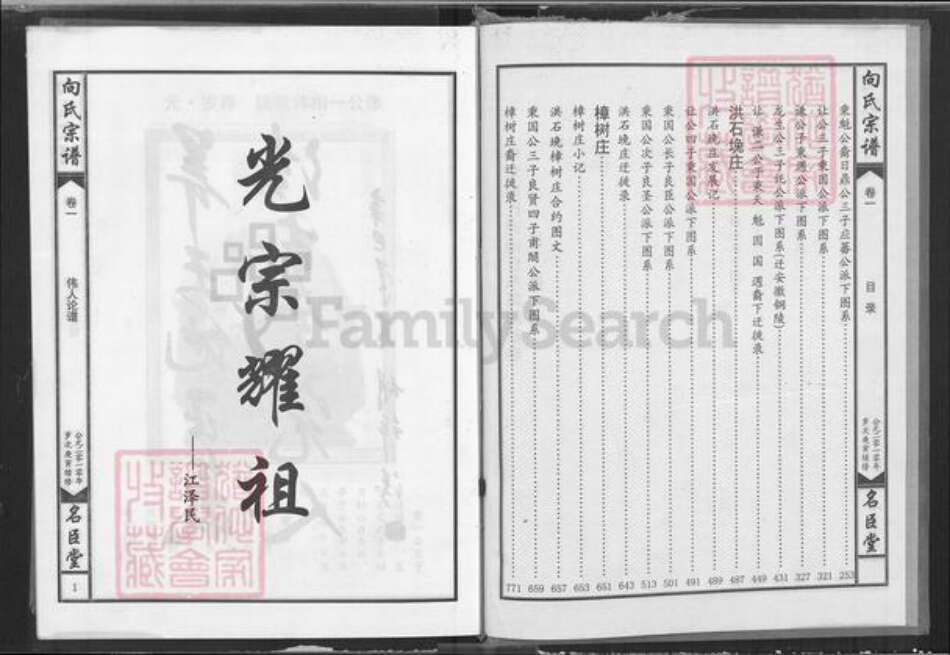 向氏宗谱
卷一
目录
公元二零一零年
岁次庚寅续修
名臣堂
秉魁公裔日鼎公三子应蕃公派下图系 253
让公三子秉国公派下图系 321
谦公子秉遇公派下图系 327
龙生公三子托公派下图系(迁安徽铜陵) 431
让、谦二公子秉天、魁、国、因、遇裔下迁徙录 449
洪石堍庄 487
洪石堍庄发展记 489
让公四子秉国公派下图系 491
秉国公长子良臣公派下图系 501
秉国公次子良圣公派下图系 513
洪石堍庄迁徙录 643
樟树庄 651
樟树庄小记 653
洪石堍樟树庄合约图文 657
秉国公三子良贤四子甫闗公派下图系 659
樟树庄裔迁徙录 771
光宗耀祖
——江泽民
向氏宗谱
卷一
伟人论谱
公元二零一零年
岁次庚寅续修
名臣堂
1
FamilySearch